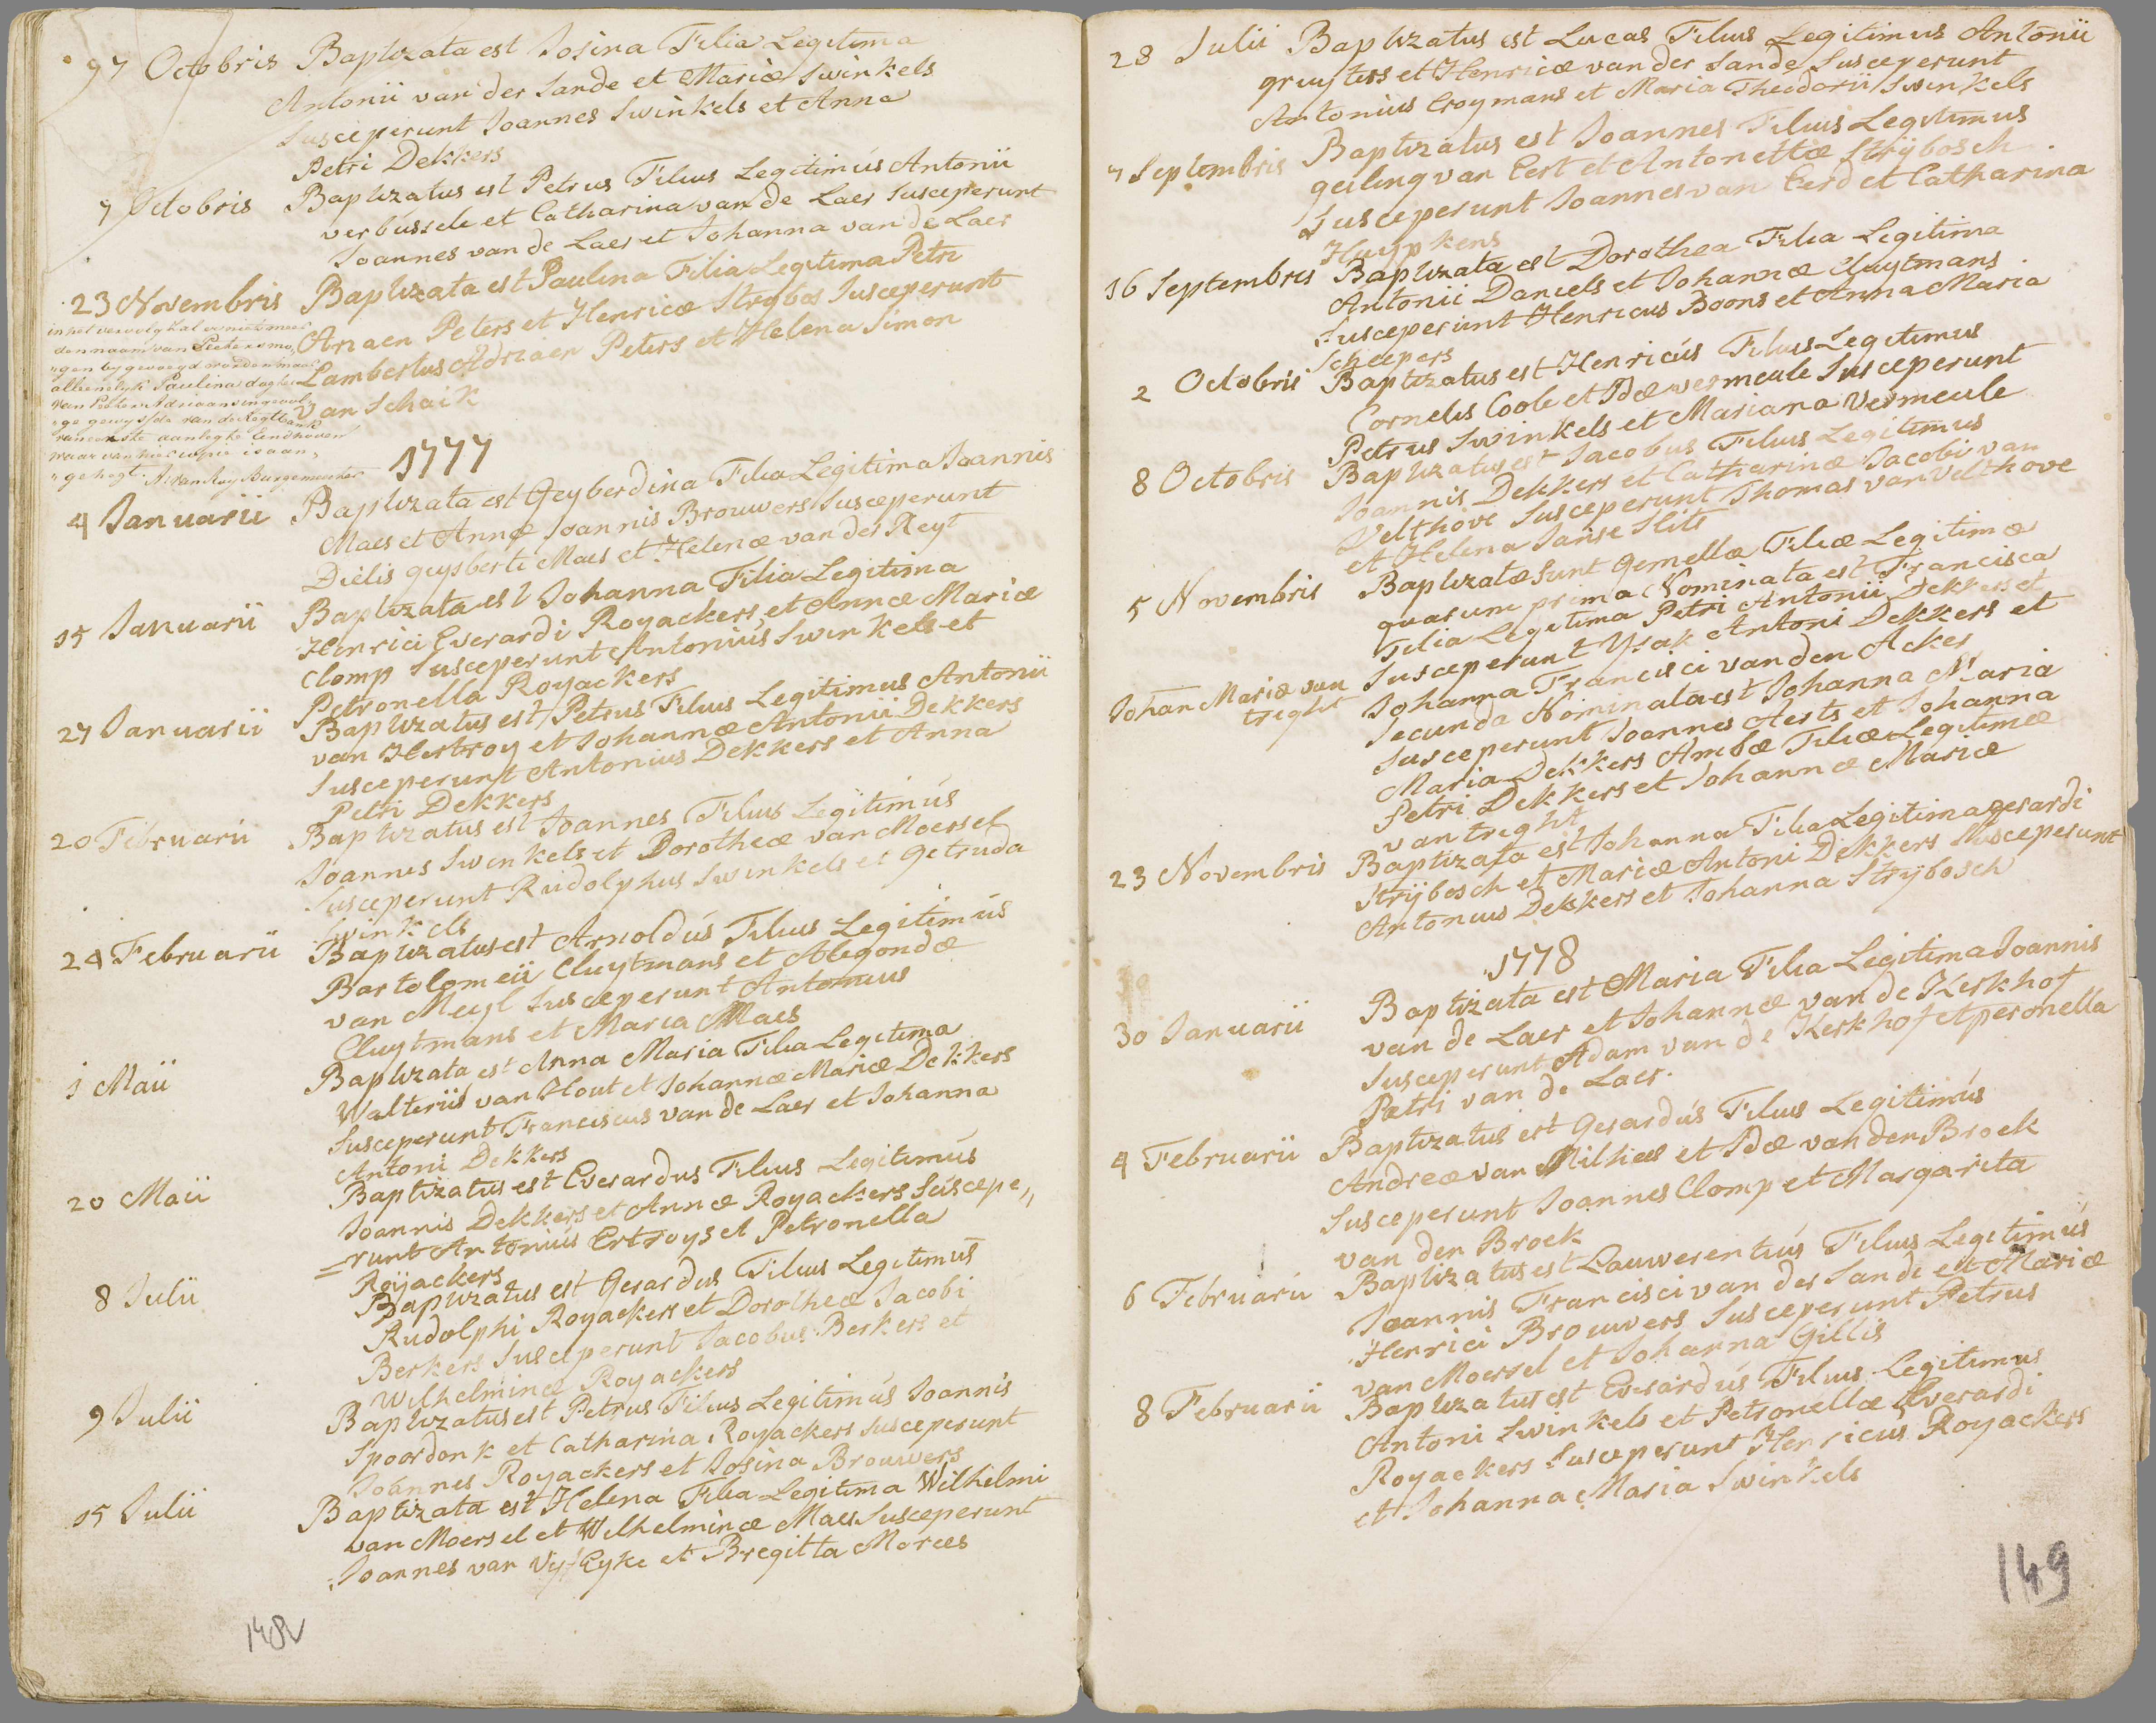 97 Octobris Baptizata est Josina Filia Legitima
Antonii van der Sande et Mariæ Swinkels
Susceperunt Joannes Swinkels et Anna
Petri Dekkers
7 Octobris Baptizatus est Petrus Filius Legitimús Antonii
verbússele et Catharina van de Laer Susceperunt
Joannes van de Laer et Johanna van de Laer
23 Novembris Baptizata est Paulina Filia Legitima Petri
Ariaen Peters et Henricæ Strybos Susceperunt
Lambertus Adriaen Peters et Helena Simon
van Schaik
in het vervolg zal er niet meer
den naam van Peeters mo„
„gen by gevoegd worden maar
alleenelyk Paulina dogter
van Peeter Adriaans ingevol„
„ge gewysde van de Regtbank
van eerste aanlegte Eindhoven
waar van hier copie is aan„
„gehegt. A. van Roy Burgemeester
1777
4 Januarii Baptizata est Geyberdina Filia Legitima Joannis
Maes et Annæ Joannis Brouwers Susceperunt
Dielis geysberti Maes et Helenæ van der Heyt
15 Januarii Baptizata est Johanna Filia Legitima
Henrici Everardi Royackers et Annæ Mariæ
Clomp Susceperunt Antoniús Swinkels et
Petronella Royackers
27 Januarii Baptizatus est Petrus Filius Legitimus Antonii
van Hertroy et Johannæ Antonii Dekkers
Susceperunt Antonius Dekkers et Anna
Petri Dekkers
20 Februarii Baptizatus est Joannes Filius Legitimús
Joannis Swinkels et Dorotheæ van Moersel
Susceperunt Rudolphus Swinkels et Getruda
Swinkels
24 Februarii Baptizatus est Arnoldús Filius Legitimús
Bartolomeii Cluytmans et Alegondæ
van Meyl Susceperunt Antonius
Cluytmans et Maria Maes
1 Maii Baptizata est Anna Maria Filia Legitima
Walterii van Hout et Johannæ Mariæ Dekkers
Susceperunt Franciscus van de Laer et Johanna
Antoni Dekkers
20 Maii Baptizatus est Everardus Filius Legitimús
Joannis Dekkers et Annæ Royackers Súscepe„
=runt Antoniús Ertroys et Petronella
Roijackers
8 Julii Baptizatus est Gerardus Filius Legitimus
Rudolphi Royackers et Dorotheæ Jacobi
Berkers Susceperunt Jacobus Berkers et
Wilhelminæ Royackers
9 Julii Baptizatus est Petrus Filius Legitimús Joannis
Spoordonk et Catharina Royackers Susceperunt
Joannes Royackers et Josina Brouwers
15 Julii Baptizata est Helena Filia Legitima Wilhelmi
van Moersel et Wilhelminæ Maes Susceperunt
Joannes van Vyf Eyke et Bregitta Marees
148v
28 Julii Baptizatus est Lucas Filius Legitimus Antonii
gruyters et Henricæ van der Sande Susceperunt
Antonius Croymans et Maria Theodorii Swinkels
7 Septembris Baptizatus est Joannes Filius Legitimus
geeling van Eert et Antonettæ Strijbosch
Susceperunt Joannes van Eerd et Catharina
Huypkens
16 Septembris Baptizata est Dorothea Filia Legitima
Antonii Daniels et Johannæ Kuytmans
Susceperunt Henricus Boons et Anna Maria
Scheepers
2 Octobris Baptizatus est Henricús Filius Legitimus
Cornelis Coole et Idæ vermeule Susceperunt
Petrus Swinkels et Mariana Vermeule
8 Octobris Baptizatus est Jacobus Filius Legitimus
Joannis Dekkers et Catharinæ Jacobi van
Velthove Susceperunt Thomas van Velthove
et Helena Janse Slits
5 Novembris Baptizatæ Sunt Gemellæ Filiæ Legitimæ
quarum prima Nominata est Francisca
Filia Legitima Petri Antonii Dekkers et
Johan Mariæ van
treght
Susceperunt Ysak Antoni Dekkers et
Johanna Francisci van den Acker
Secunda Nominata est Johanna Maria
Susceperunt Joannes Aerts et Johanna
Maria Dekkers Ambæ Filiæ Legitimæ
Petri Dekkers et Johannæ Mariæ
van treght
23 Novembris Baptizata est Johanna Filia Legitima gerardi
Strijbosch et Mariæ Antoni Dekkers Susceperunt
Antonius Dekkers et Johanna Strijbosch
1778
30 Januarii Baptizata est Maria Filia Legitima Joannis
van de Laer et Johannæ van de Kerkhof
Susceperunt Adam van de Kerkhof et peronella
Pætri van de Laer.
4 Februarii Baptizatus est Gerardús Filius Legitimús
Andreæ van Milhees et Idæ van den Broek
Susceperunt Joannes Clomp et Margarita
van den Broek
6 Februarii Baptizatus est Lauwerentiús Filius Legitimús
Joannis Francisci van der Sande et Mariæ
Henrici Brouwers Susceperunt Petrus
van Moersel et Johanna Gillis
8 Februarii Baptizatus est Everardús Filius Legitimus
Antoni Swinkels et Petronellæ Everardi
Royackers Susceperunt Henricus Royackers
et Johanna Maria Swinkels
149